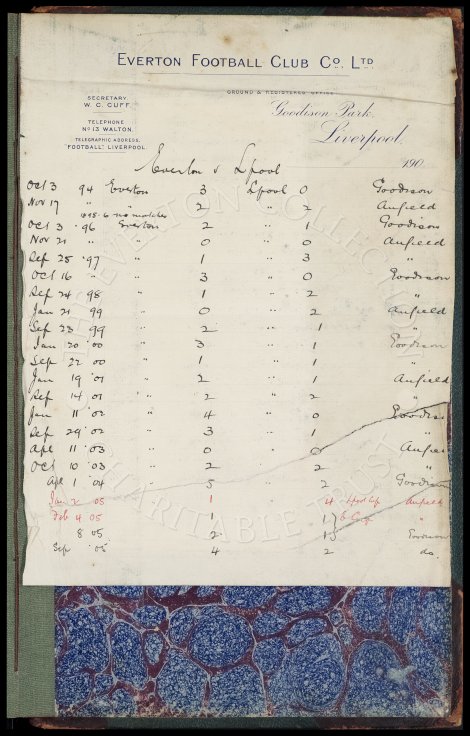 EVERTON FOOTBALL CLUB CO. LTD
GROUND & REGISTERED OFFICE
SECRETARY
W. C. CUFF.
TELEPHONE
No 13 WALTON.
TELEGRAPHIC ADDRESS,
"FOOTBALL" LIVERPOOL.
Goodison Park,
Liverpool,
190
Everton v Lpool
Oct 3 94 Everton 3 Lpool 0 Goodison
Nov 17 " " 2 " 2 Anfield
1895-6 no matches
Oct 3 '96 Everton 2 " 1 Goodison
Nov 21 " " 0 " 0 Anfield
Sep 25 '97 " 1 " 3 "
Oct 16 " " 3 " 0 Goodison
Sep 24 98 " 1 " 2 "
Jan 21 99 " 0 " 2 Anfield
Sep 23 99 " 2 " 1 "
Jan 20 '00 " 3 " 1 Goodison
Sep 22 00 " 1 " 1 "
Jan 19 '01 " 2 " 1 Anfield
Sep 14 '01 " 2 " 2 "
Jan 11 '02 " 4 " 0 Goodison
Sep 29 '02 " 3 1 "
Apl 11 '03 " 0 0 Anfie
Oct 10 '03 " 2 2 "
Apl 1 '04 " 5 " 2 Goodison
Jan 2 05 1 4 Lpool Cup Anfield
Feb 4 05 1 1 E Cup "
8 05 2 1 Goodison
Sep '05 4 2 do.
THE EVERTON COLLECTION
CHARITABLE TRUST